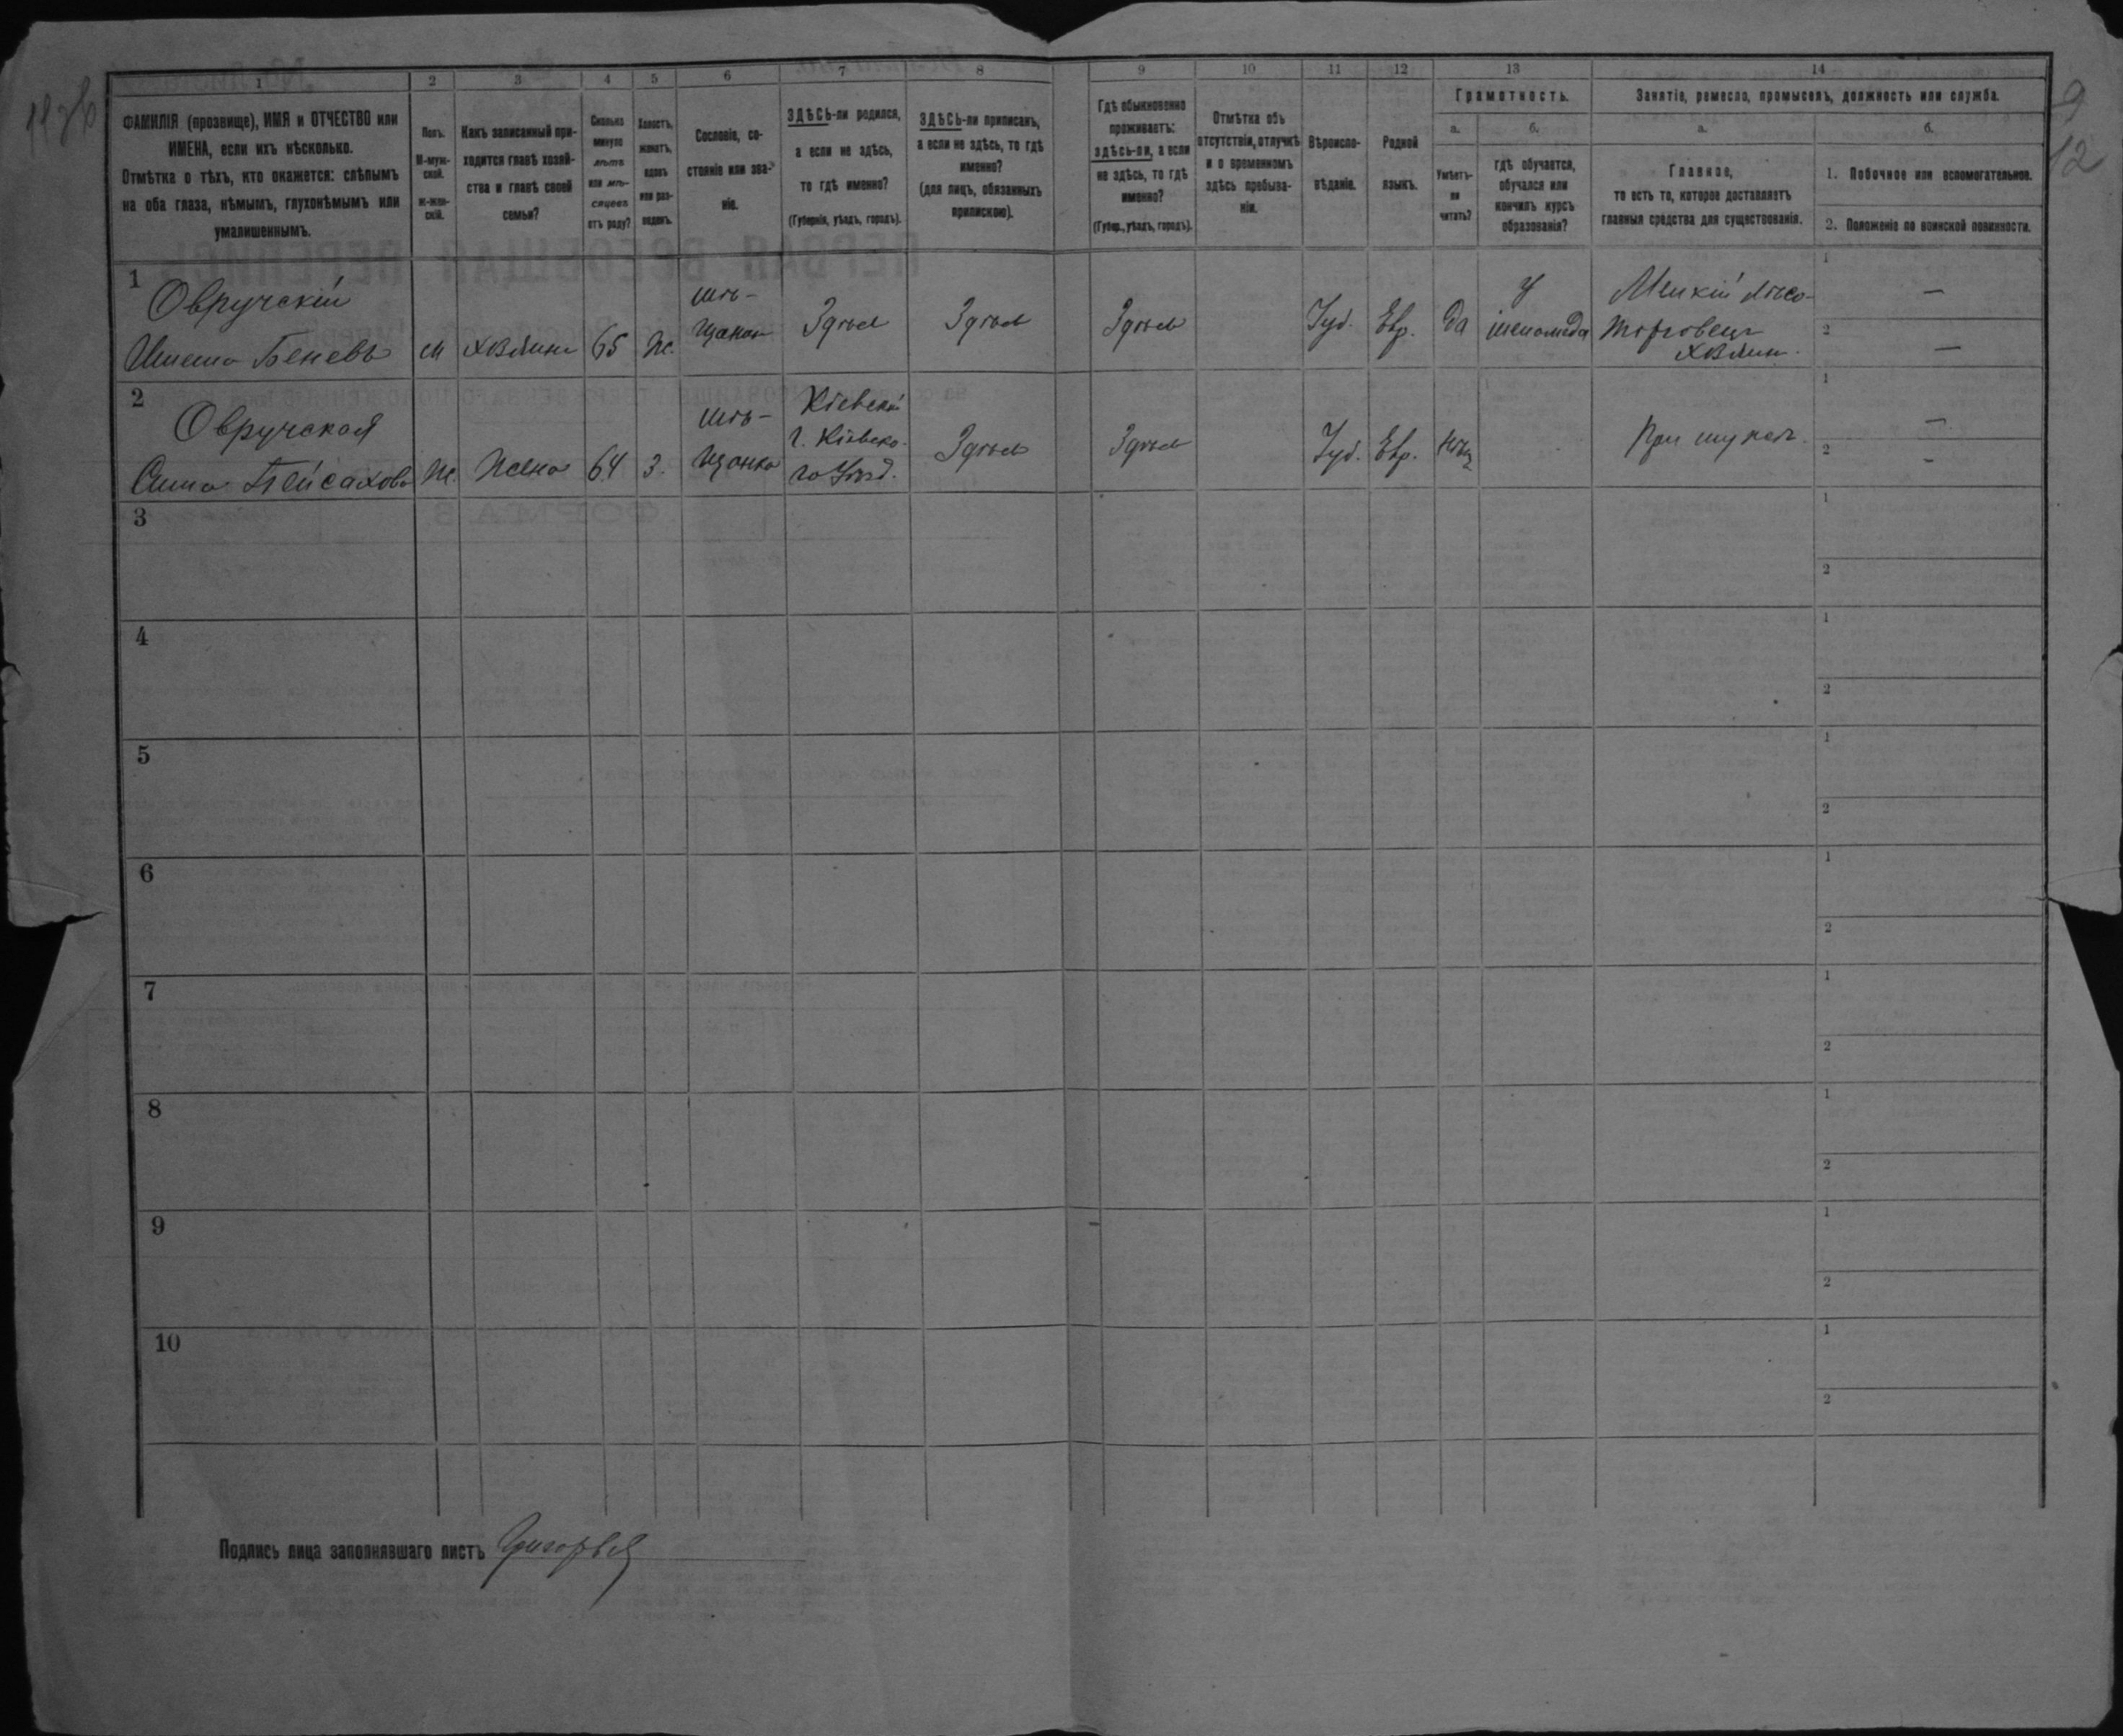 1 2 3 4 5 6 7 8 9 10 11 12 13 14
ФАМИЛІЯ (прозвище), ИМЯ и ОТЧЕСТВО или
ИМЕНА, если ихъ нѣсколько.
Отмѣтка о тѣхъ, кто окажется: слѣпымъ
на оба глаза, нѣмымъ, глухонѣмымъ или
умалишеннымъ.
Полъ.
М-муж-
ской.
ж-жен-
скій.
Какъ записанный при-
ходится главѣ хозяй-
ства и главѣ своей
семьи?
Сколько
минуло
лѣтъ
или мѣ-
сяцевъ
отъ роду?
Холостъ,
женатъ,
вдовъ
или раз-
веденъ.
Сословіе, со-
стояніе или зва-
ніе.
ЗДѢСЬ-ли родился,
а если не здѣсь,
то гдѣ именно?
(Губернія, уѣздъ, городъ).
ЗДѢСЬ-ли приписанъ,
а если не здѣсь, то гдѣ
именно?
(для лицъ, обязанныхъ
припискою).
Гдѣ обыкновенно
проживаетъ:
здѣсь-ли, а если
не здѣсь, то гдѣ
именно?
(Губер., уѣздъ, городъ).
Отмѣтка объ
отсутствіи, отлучкѣ
и о временномъ
здѣсь пребыва-
ніи.
Вѣроиспо-
вѣданіе.
Родной
языкъ.
Грамотность.
а.
Умѣетъ-
ли
читать?
б.
гдѣ обучается,
обучался или
кончилъ курсъ
образованія?
Занятіе, ремесло, промыселъ, должность или служба.
а.
Главное,
то есть то, которое доставляетъ
главныя средства для существованія.
б.
1. Побочное или вспомогательное.
2. Положеніе по воинской повинности.
1
Овручскій
Беневъ
м
хозяинъ
65
ж.
мѣ-
щанин
Здѣсь
Здѣсь
Здѣсь
Іуд.
Евр.
да
у
меламеда
Мелкій лѣсо-
торговецъ
хозяин.
1 —
2 —
2
Овручская
Сима Пейсахова
ж.
жена
64
з.
мѣ-
щанка
Кіевской
г. Кіевско-
го Уѣзд.
Здѣсь
Здѣсь
Іуд.
Евр.
нѣт
При мужѣ.
1 —
2 -
3 1
2
4 1
2
5 1
2
6 1
2
7 1
2
8 1
2
9 1
2
10 1
2
Подпись лица заполнявшаго листъ Григорьев